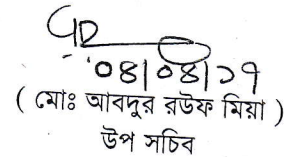 ০৪|০৪|১৭
( মোঃ আবদুর রউফ মিয়া )
উপ সচিব